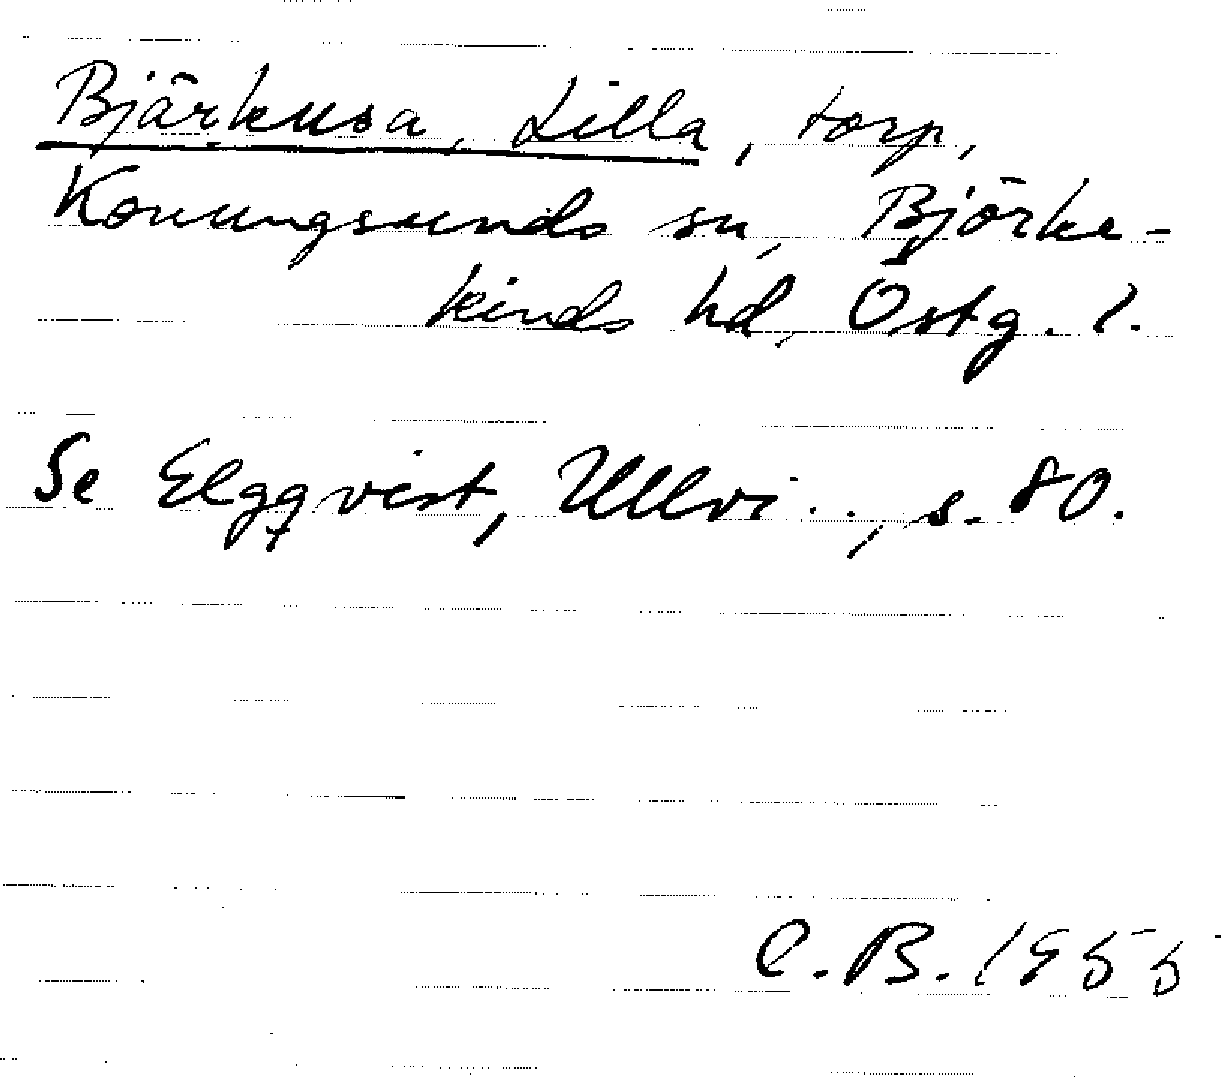 Bjärkusa, Lilla, torp,
Konungsunds sn, Björke-
kinds hd, Östg. l.
Se Elgqvist, Ullvi..., s. 80.
C.B. 1955